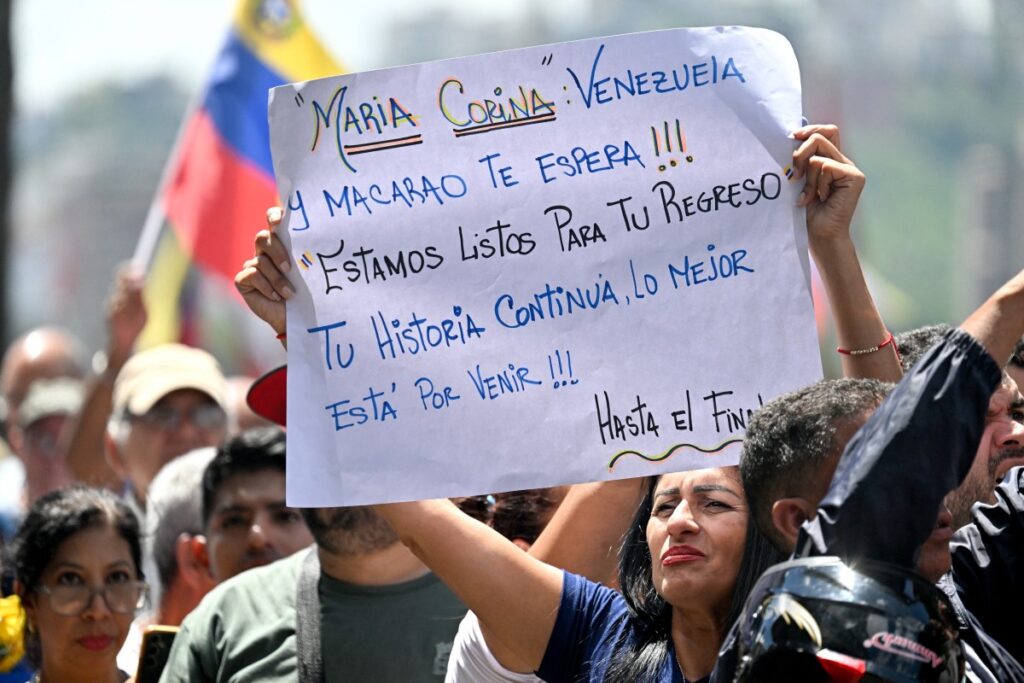 "MARIA CORINA": VENEZUELA
Y MACARAO TE ESPERA!!!
"ESTAMOS LISTOS PARA TU REGRESO"
TU HISTORIA CONTINÚA, LO MEJOR
ESTÁ POR VENIR!!!
HASTA EL FINAL